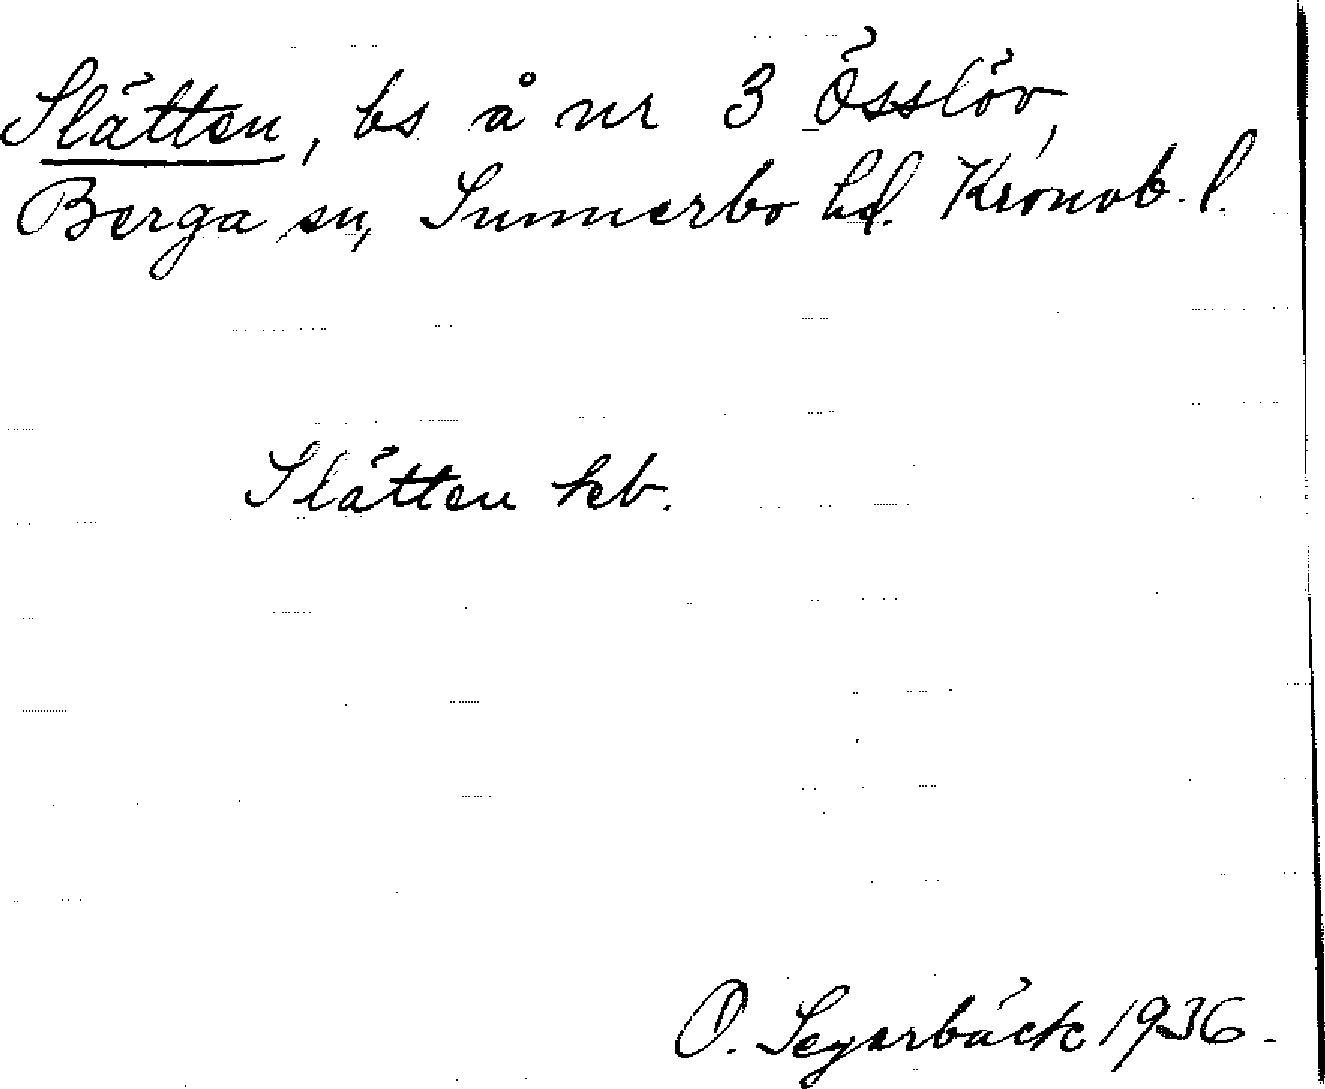 Slätten, bs å nr 3 Össlöv,
Berga sn, Sunnerbo hd. Kronob. l.
Slätten kb.
O. Segerbäck 1936.